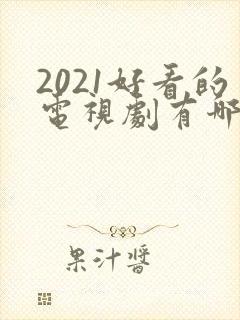 2021好看的
電視劇有哪
果汁醬